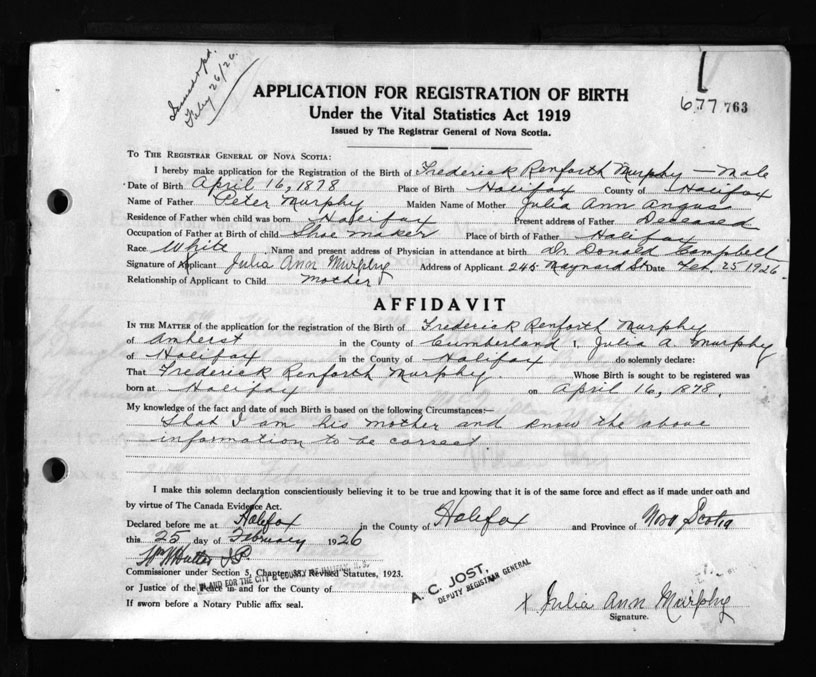 Feby 26/26.
677 763
APPLICATION FOR REGISTRATION OF BIRTH
Under the Vital Statistics Act 1919
Issued by The Registrar General of Nova Scotia.
TO THE REGISTRAR GENERAL OF NOVA SCOTIA:
I hereby make application for the Registration of the Birth of Frederick Renforth Murphy — Male
Date of Birth April 16, 1878 Place of Birth Halifax County of Halifax
Name of Father Peter Murphy Maiden Name of Mother Julia Ann Angus
Residence of Father when child was born Halifax Present address of Father Deceased
Occupation of Father at Birth of child Shoe maker Place of birth of Father Halifax
Race White Name and present address of Physician in attendance at birth Dr. Donald Campbell
Signature of Applicant Julia Ann Murphy Address of Applicant 245 Maynard St Date Feb. 25 1926.
Relationship of Applicant to Child Mother
AFFIDAVIT
IN THE MATTER of the application for the registration of the Birth of Frederick Renforth Murphy
of Amherst in the County of Cumberland I, Julia A. Murphy
of Halifax in the County of Halifax do solemnly declare:
That Frederick Renforth Murphy. Whose Birth is sought to be registered was
born at Halifax on April 16, 1878.
My knowledge of the fact and date of such Birth is based on the following Circumstances:—
That I am his mother and know the above
information to be correct
I make this solemn declaration conscientiously believing it to be true and knowing that it is of the same force and effect as if made under oath and
by virtue of The Canada Evidence Act.
Declared before me at Halifax in the County of Halifax and Province of Nova Scotia
this 25 day of February 1926
J.P.
Commissioner under Section 5, Chapter 38, Revised Statutes, 1923.
IN AND FOR THE CITY & COUNTY OF HALIFAX, N. S.
or Justice of the Peace in and for the County of
A. C. JOST,
DEPUTY REGISTRAR GENERAL
If sworn before a Notary Public affix seal.
X Julia Ann Murphy
Signature.